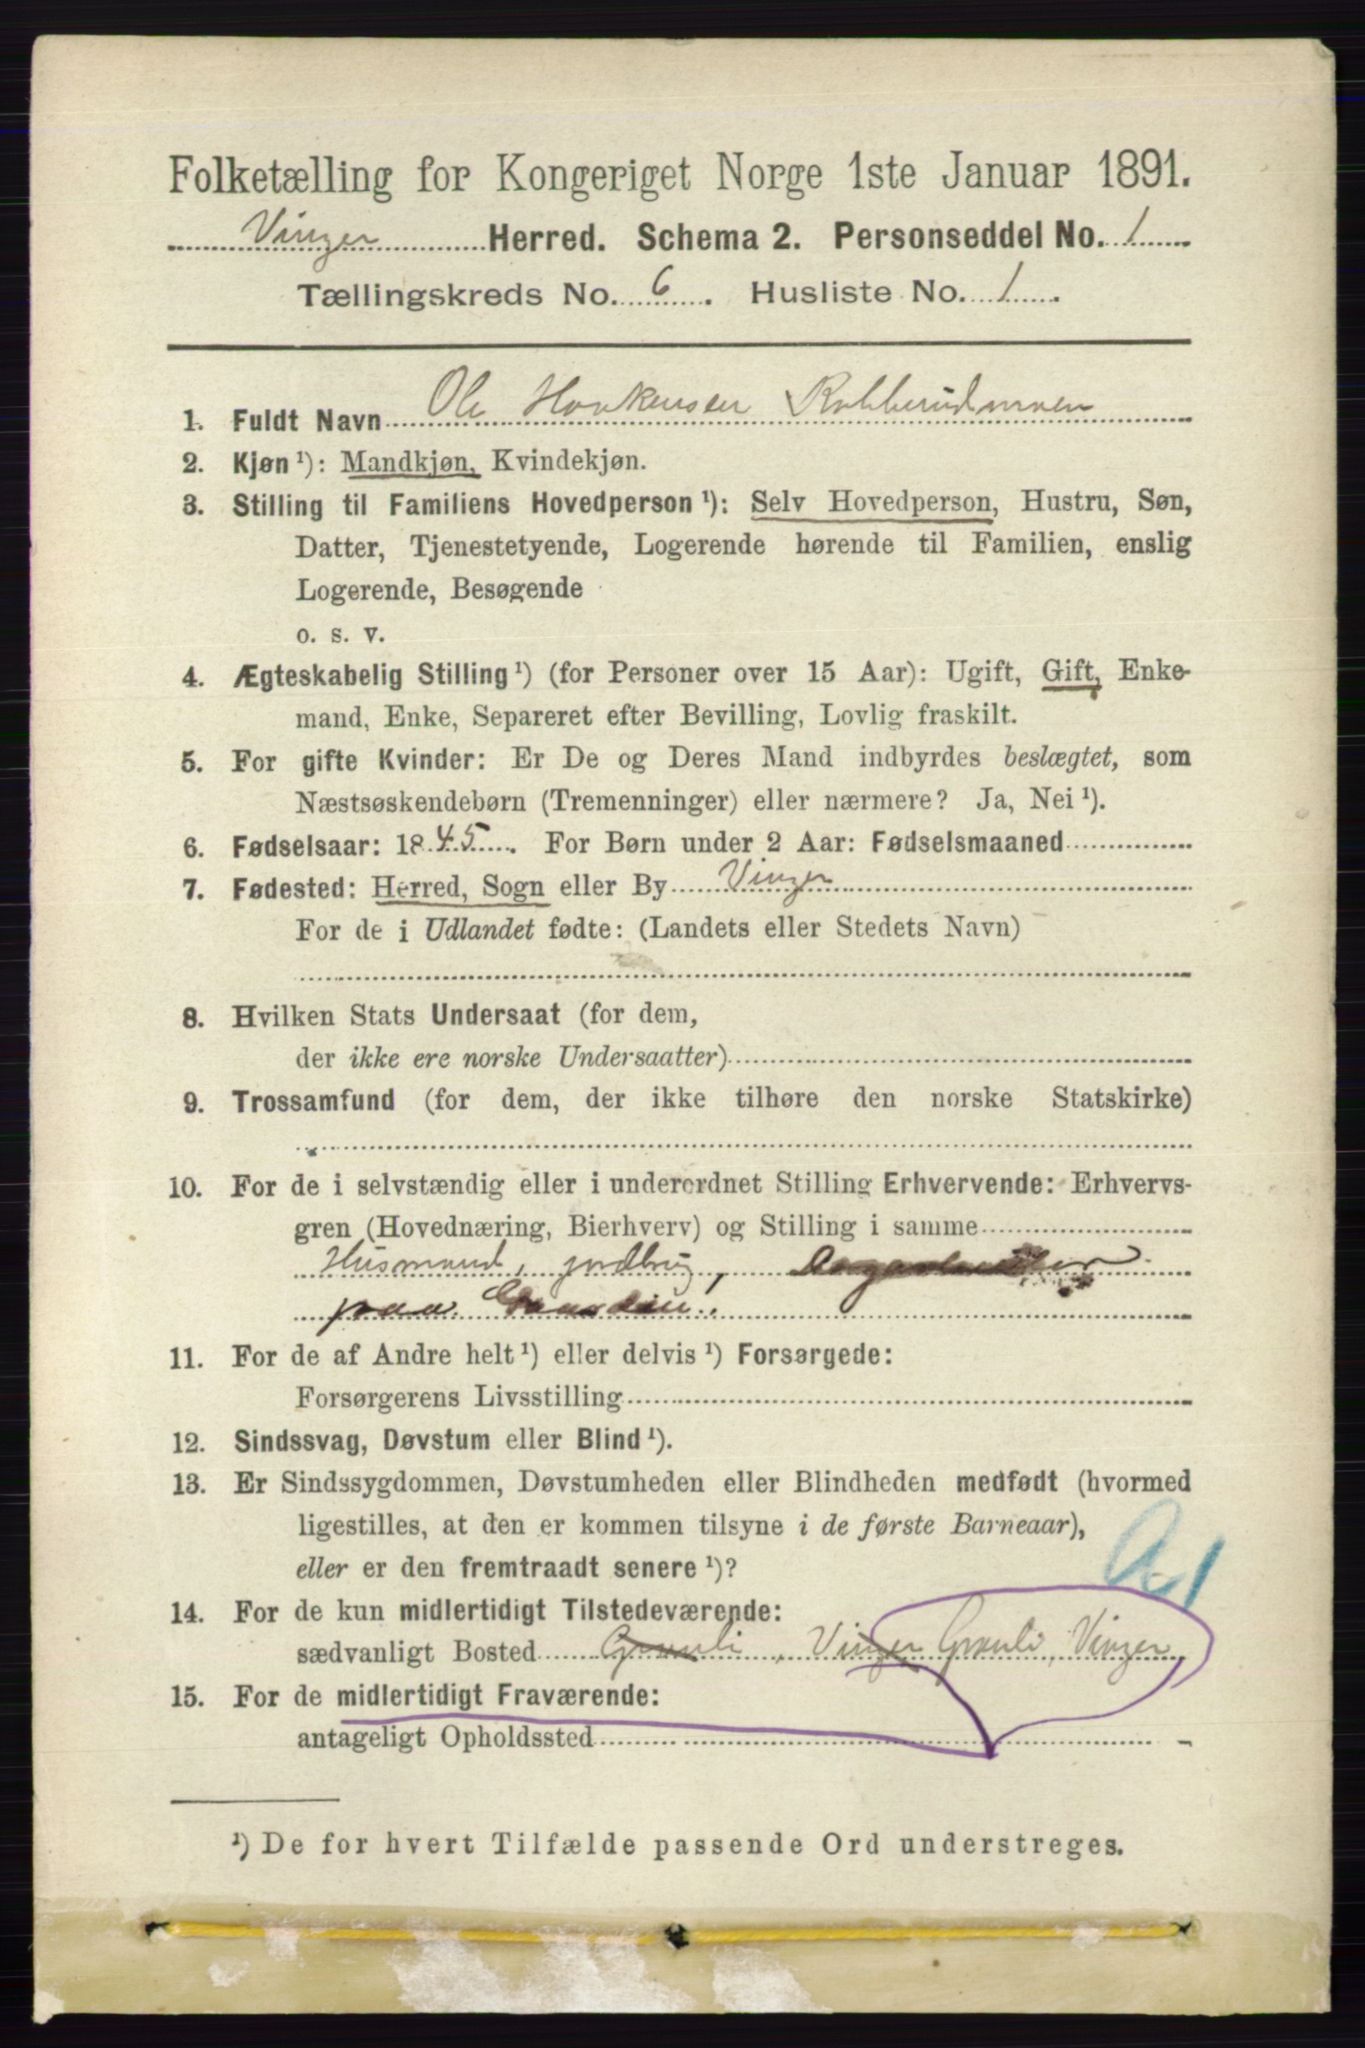 Folketælling for Kongeriget Norge 1ste Januar 1891.
Vinger Herred. Schema 2. Personseddel No. 1
Tællingskreds No. 6. Husliste No. 1.
1. Fuldt Navn Ole Haakensen
2. Kjøn ¹): Mandkjøn, Kvindekjøn.
3. Stilling til Familiens Hovedperson ¹): Selv Hovedperson, Hustru, Søn,
Datter, Tjenestetyende, Logerende hørende til Familien, enslig
Logerende, Besøgende
o. s. v.
4. Ægteskabelig Stilling ¹) (for Personer over 15 Aar): Ugift, Gift, Enke-
mand, Enke, Separeret efter Bevilling, Lovlig fraskilt.
5. For gifte Kvinder: Er De og Deres Mand indbyrdes beslægtet, som
Næstsøskendebørn (Tremenninger) eller nærmere? Ja, Nei ¹).
6. Fødselsaar: 1845. For Børn under 2 Aar: Fødselsmaaned
7. Fødested: Herred, Sogn eller By Vinger
For de i Udlandet fødte: (Landets eller Stedets Navn)
8. Hvilken Stats Undersaat (for dem,
der ikke ere norske Undersaatter)
9. Trossamfund (for dem, der ikke tilhøre den norske Statskirke)
10. For de i selvstændig eller i underordnet Stilling Erhvervende: Erhvervs-
gren (Hovednæring, Bierhverv) og Stilling i samme
Husmand, jordbrug,
paa Gaarden.
11. For de af Andre helt ¹) eller delvis ¹) Forsørgede:
Forsørgerens Livsstilling
12. Sindssvag, Døvstum eller Blind ¹).
13. Er Sindssygdommen, Døvstumheden eller Blindheden medfødt (hvormed
ligestilles, at den er kommen tilsyne i de første Barneaar),
eller er den fremtraadt senere ¹)?
14. For de kun midlertidigt Tilstedeværende:
sædvanligt Bosted Granli, Vinger Granli, Vinger
15. For de midlertidigt Fraværende:
antageligt Opholdssted
¹) De for hvert Tilfælde passende Ord understreges.